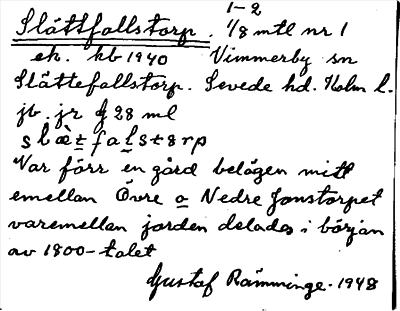 1-2
Slättfallstorp. 1/8 mtl nr 1
ek. kb 1940 Vimmerby sn
Slättefallstorp. Sevede hd. Kalm l.
jb. jr f 28 ml
slæ̀tfalstɵrp
Var förr en gård belägen mitt
emellan Övre o Nedre Jonstorpet
varemellan jorden delades i början
av 1800-talet
Gustaf Rämminge. 1948